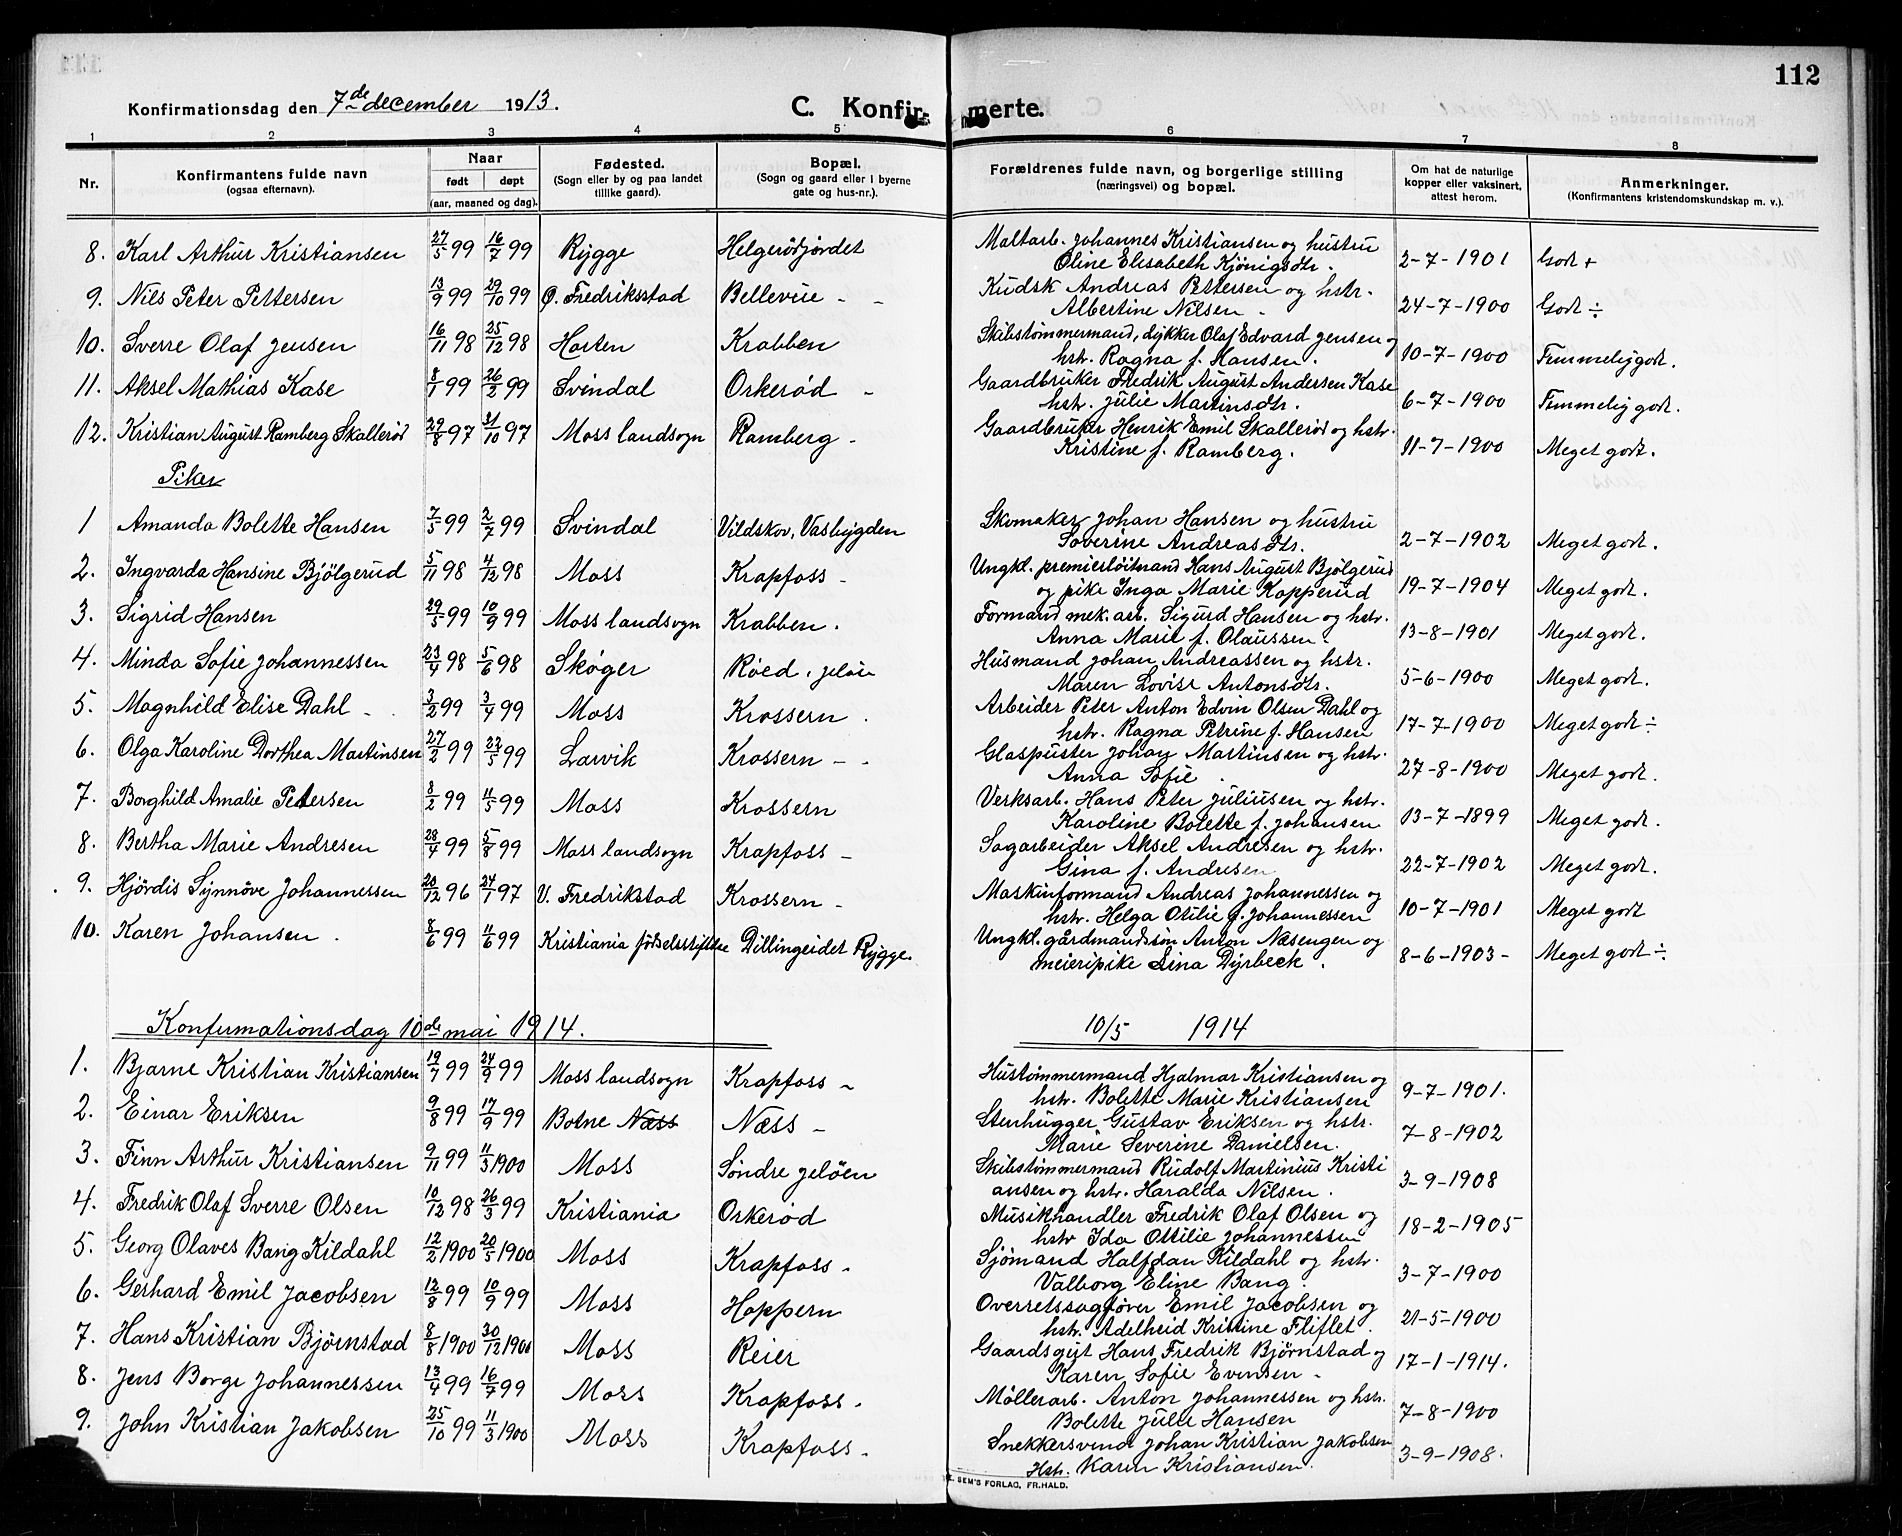 112
Konfirmationsdag den 7de december 1913.
C. Konfirmerte.
1 2 3 4 5 6 7 8
Nr. Konfirmantens fulde navn (ogsaa efternavn). Naar født døpt (aar, maaned og dag). Fødested. (Sogn eller by og paa landet tillike gaard). Bopæl. (Sogn og gaard eller i byerne gate og hus-nr.). Forældrenes fulde navn, og borgerlige stilling (næringsvei) og bopæl. Om hat de naturlige kopper eller vaksinert, attest herom. Anmerkninger. (Konfirmantens kristendomskundskap m. v.).
8. Karl Arthur Kristiansen 27/5 99 16/7 99 Rygge Helgerödjordet Maltarb. Johannes Kristiansen og hustru Oline Elisabeth Kjönigsdtr. 2-7-1901 Godt +
9. Nils Peter Pettersen 13/9 99 29/10 99 Ø. Fredriksstad Bellevue - - Kudsk Andreas Pettersen og hstr. Albertine Nilsen - 24-7-1900 Godt ÷
10. Sverre Olaf Jensen 16/11 98 25/12 98 Horten Krabben Skibstømmermand, dykker Olaf Edvard Jensen og hstr. Ragna f. Hansen. 10-7-1900 Temmelig godt.
11. Aksel Mathias Kase 8/1 99 26/2 99 Svindal Orkerød - Gaardbruker Fredrik August Andersen Kase hstr. Julie Martinsdtr. 6-7-1900 Temmelig godt.
12. Kristian August Ramberg Skallerød 29/8 97 31/10 97 Moss landsogn Ramberg - Gaardbruker Henrik Emil Skallerød og hstr. Kristine f. Ramberg. 11-7-1900 Meget godt.
Piker
1 Amanda Bolette Hansen 7/5 99 2/7 99 Svindal Vildskov, Vasbygden Skomaker Johan Hansen og hustru Soverine Andreasdtr. 2-7-1902 Meget godt.
2. Ingvarda Hansine Bjölgerud 5/11 98 4/12 98 Moss Krapfoss - Ungkl. premierløitnand Hans August Bjølgerud og pike Inga Marie Kopperud 19-7-1904 Meget godt.
3. Sigrid Hansen 29/5 99 10/9 99 Moss landsogn Krabben. Formand mek. arb. Sigurd Hansen og hstr. Anna Marie f. Olaussen. 13-8-1901 Meget godt.
4. Minda Sofie Johannessen 23/4 98 5/6 98 Skøger Røed, Jeløen Husmand Johan Andreassen og hstr. Maren Lovise Antonsdtr. 5-6-1900 Meget godt.
5. Magnhild Elise Dahl - 3/2 99 3/4 99 Moss Krossern . Arbeider Peter Anton Edvin Olsen Dahl og hstr. Ragna Petrine f. Hansen 17-7-1900 Meget godt ÷
6. Olga Karoline Dorthea Martinsen 27/2 99 22/5 99 Larvik Krossern - - Glaspuster Johan Martinsen og hstr. Anna Sofie . 27-8-1900 Meget godt.
7. Borghild Amalie Petersen 8/2 99 11/5 99 Moss Krossern Verksarb. Hans Peter Juliusen og hstr. Karoline Bolette f. Johansen 13-7-1899 Meget godt.
8. Bertha Marie Andresen 28/4 99 5/8 99 Moss landsogn Krapfoss - Sagarbeider Aksel Andresen og hstr. Gina f. Andresen 22-7-1902 Meget godt.
9. Hjördis Synnöve Johannessen 20/12 96 24/1 97 V. Fredrikstad Krossern - Maskinformand Andreas Johannessen og hstr. Helga Otilie f. Johannessen 10-7-1901 Meget godt
10. Karen Johansen . 8/6 99 11/6 99 Kristiania födselsstiftelse Dillingeidet Rygge. Ungkl. gårdmandssøn Anton Næsengen og meieripike Lina Dyrbeck . 8-6-1903- Meget godt ÷
Konfirmationsdag 10de mai 1914. 10/5 1914
1. Bjarne Kristian Kristiansen 19/7 99 24/9 99 Moss landsogn Krapfoss - Hustømmermand Hjalmar Kristiansen og hstr. Bolette Marie Kristiansen 9-7-1901.
2. Einar Eriksen 9/8 99 17/9 99 Botne Næss Næss - Stenhugger Gustav Eriksen og hstr. Marie Severine Danielsen. 7-8-1902
3. Finn Arthur Kristiansen 9/11 99 11/3 1900 Moss Söndre Jelöen Skibstømmermand Rudolf Martinius Kristiansen og hstr. Haralda Nilsen. 3-9-1908
4. Fredrik Olaf Sverre Olsen 10/12 98 26/3 99 Kristiania Orkerød Musikhandler Fredrik Olaf Olsen og hstr Ida Ottilie Johannessen 18-2-1905
5. Georg Olaves Bang Kildahl 12/2 1900 20/5 1900 Moss Krapfoss - Sjömand Halfdan Kildahl og hstr. Valborg Eline Bang. 3-7-1900
6. Gerhard Emil Jacobsen 12/8 99 10/9 99 Moss Hoppern Overretssagfører Emil Jacobsen og hstr. Adelheid Kristine Fliflet. 21-5-1900
7. Hans Kristian Bjørnstad 8/8 1900 30/12 1900 Moss Reier Gaardsgut Hans Fredrik Bjørnstad og Karen Sofie Evensen - 17-1-1914.
8. Jens Borge Johannessen 13/4 99 16/7 99 Moss Krapfoss - Möllerarb. Anton Johannessen og hstr. Bolette Julie Hansen 7-8-1900
9. John Kristian Jakobsen 25/10 99 11/3 1900 Moss Krapfoss - Snekkersvend Johan Kristian Jakobsen Hstr. Karen Kristiansen. 3-9-1908.
E. SEM'S FORLAG, FR.HALD.